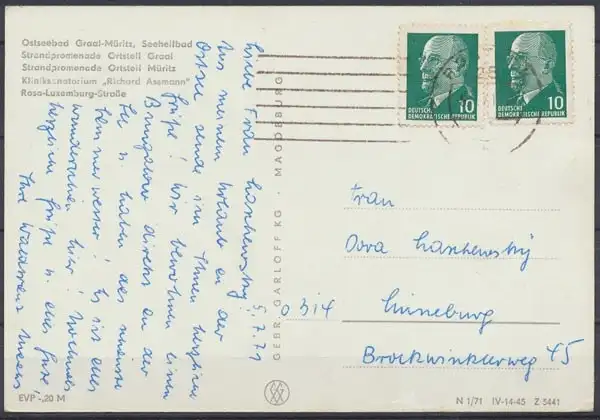 Ostseebad Graal-Müritz, Seeheilbad
Strandpromenade Ortsteil Graal
Strandpromenade Ortsteil Müritz
Kliniksanatorium „Richard Assmann"
Rosa-Luxemburg-Straße
10
DEUTSCHE
DEMOKRATISCHE REPUBLIK
10
DEUTSCHE
DEMOKRATISCHE REPUBLIK
5.7.71
Liebe Frau
Aus meinem Urlaub an der
Ostsee sende ich Ihnen herzliche
Grüße! Wir bewohnen einen
Bungalow direkt an der
See u. haben das
Es ist
wunderschön hier! Nochmals
herzliche Grüße
Ihre
GEBR. GARLOFF KG · MAGDBURG
Frau
Dora
0314 Lüneburg
Brockwinklerweg 45
EVP -,20 M
N 1/71 IV-14-45 Z 5441